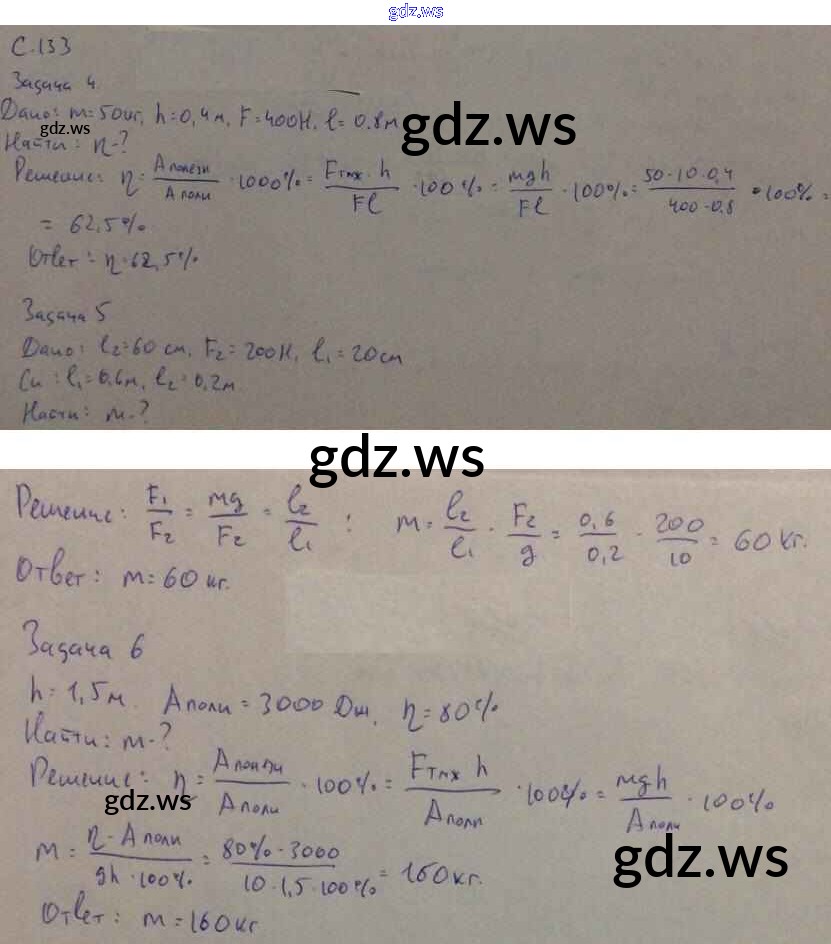 gdz.ws
С.133
Задача 4
Дано: m=50кг, h=0,4м, F=400Н, l=0.8м
gdz.ws
gdz.ws
Найти: η-?
Решение: η = Aполезн / Aполн · 1000% = Fтяж · h / Fl · 100% = mgh / Fl · 100% = 50·10·0,4 / 400·0,8 · 100% =
= 62,5%
Ответ: η=62,5%
Задача 5
Дано: l₂=60 см, F₂=200Н, l₁=20см
Си: l₁=0,6м, l₂=0,2м
Найти: m-?
gdz.ws
Решение: F₁ / F₂ = mg / F₂ = l₂ / l₁ ; m = l₂ / l₁ · F₂ / g = 0,6 / 0,2 · 200 / 10 = 60 кг.
Ответ: m=60 кг.
Задача 6
h=1,5м. Aполн = 3000 Дж, η=80%
Найти: m-?
Решение: η = Aполезн / Aполн · 100% = Fтяж h / Aполн · 100% = mgh / Aполн · 100%
gdz.ws
m = η·Aполн / gh·100% = 80%·3000 / 10·1,5·100% = 160кг.
gdz.ws
Ответ: m=160кг